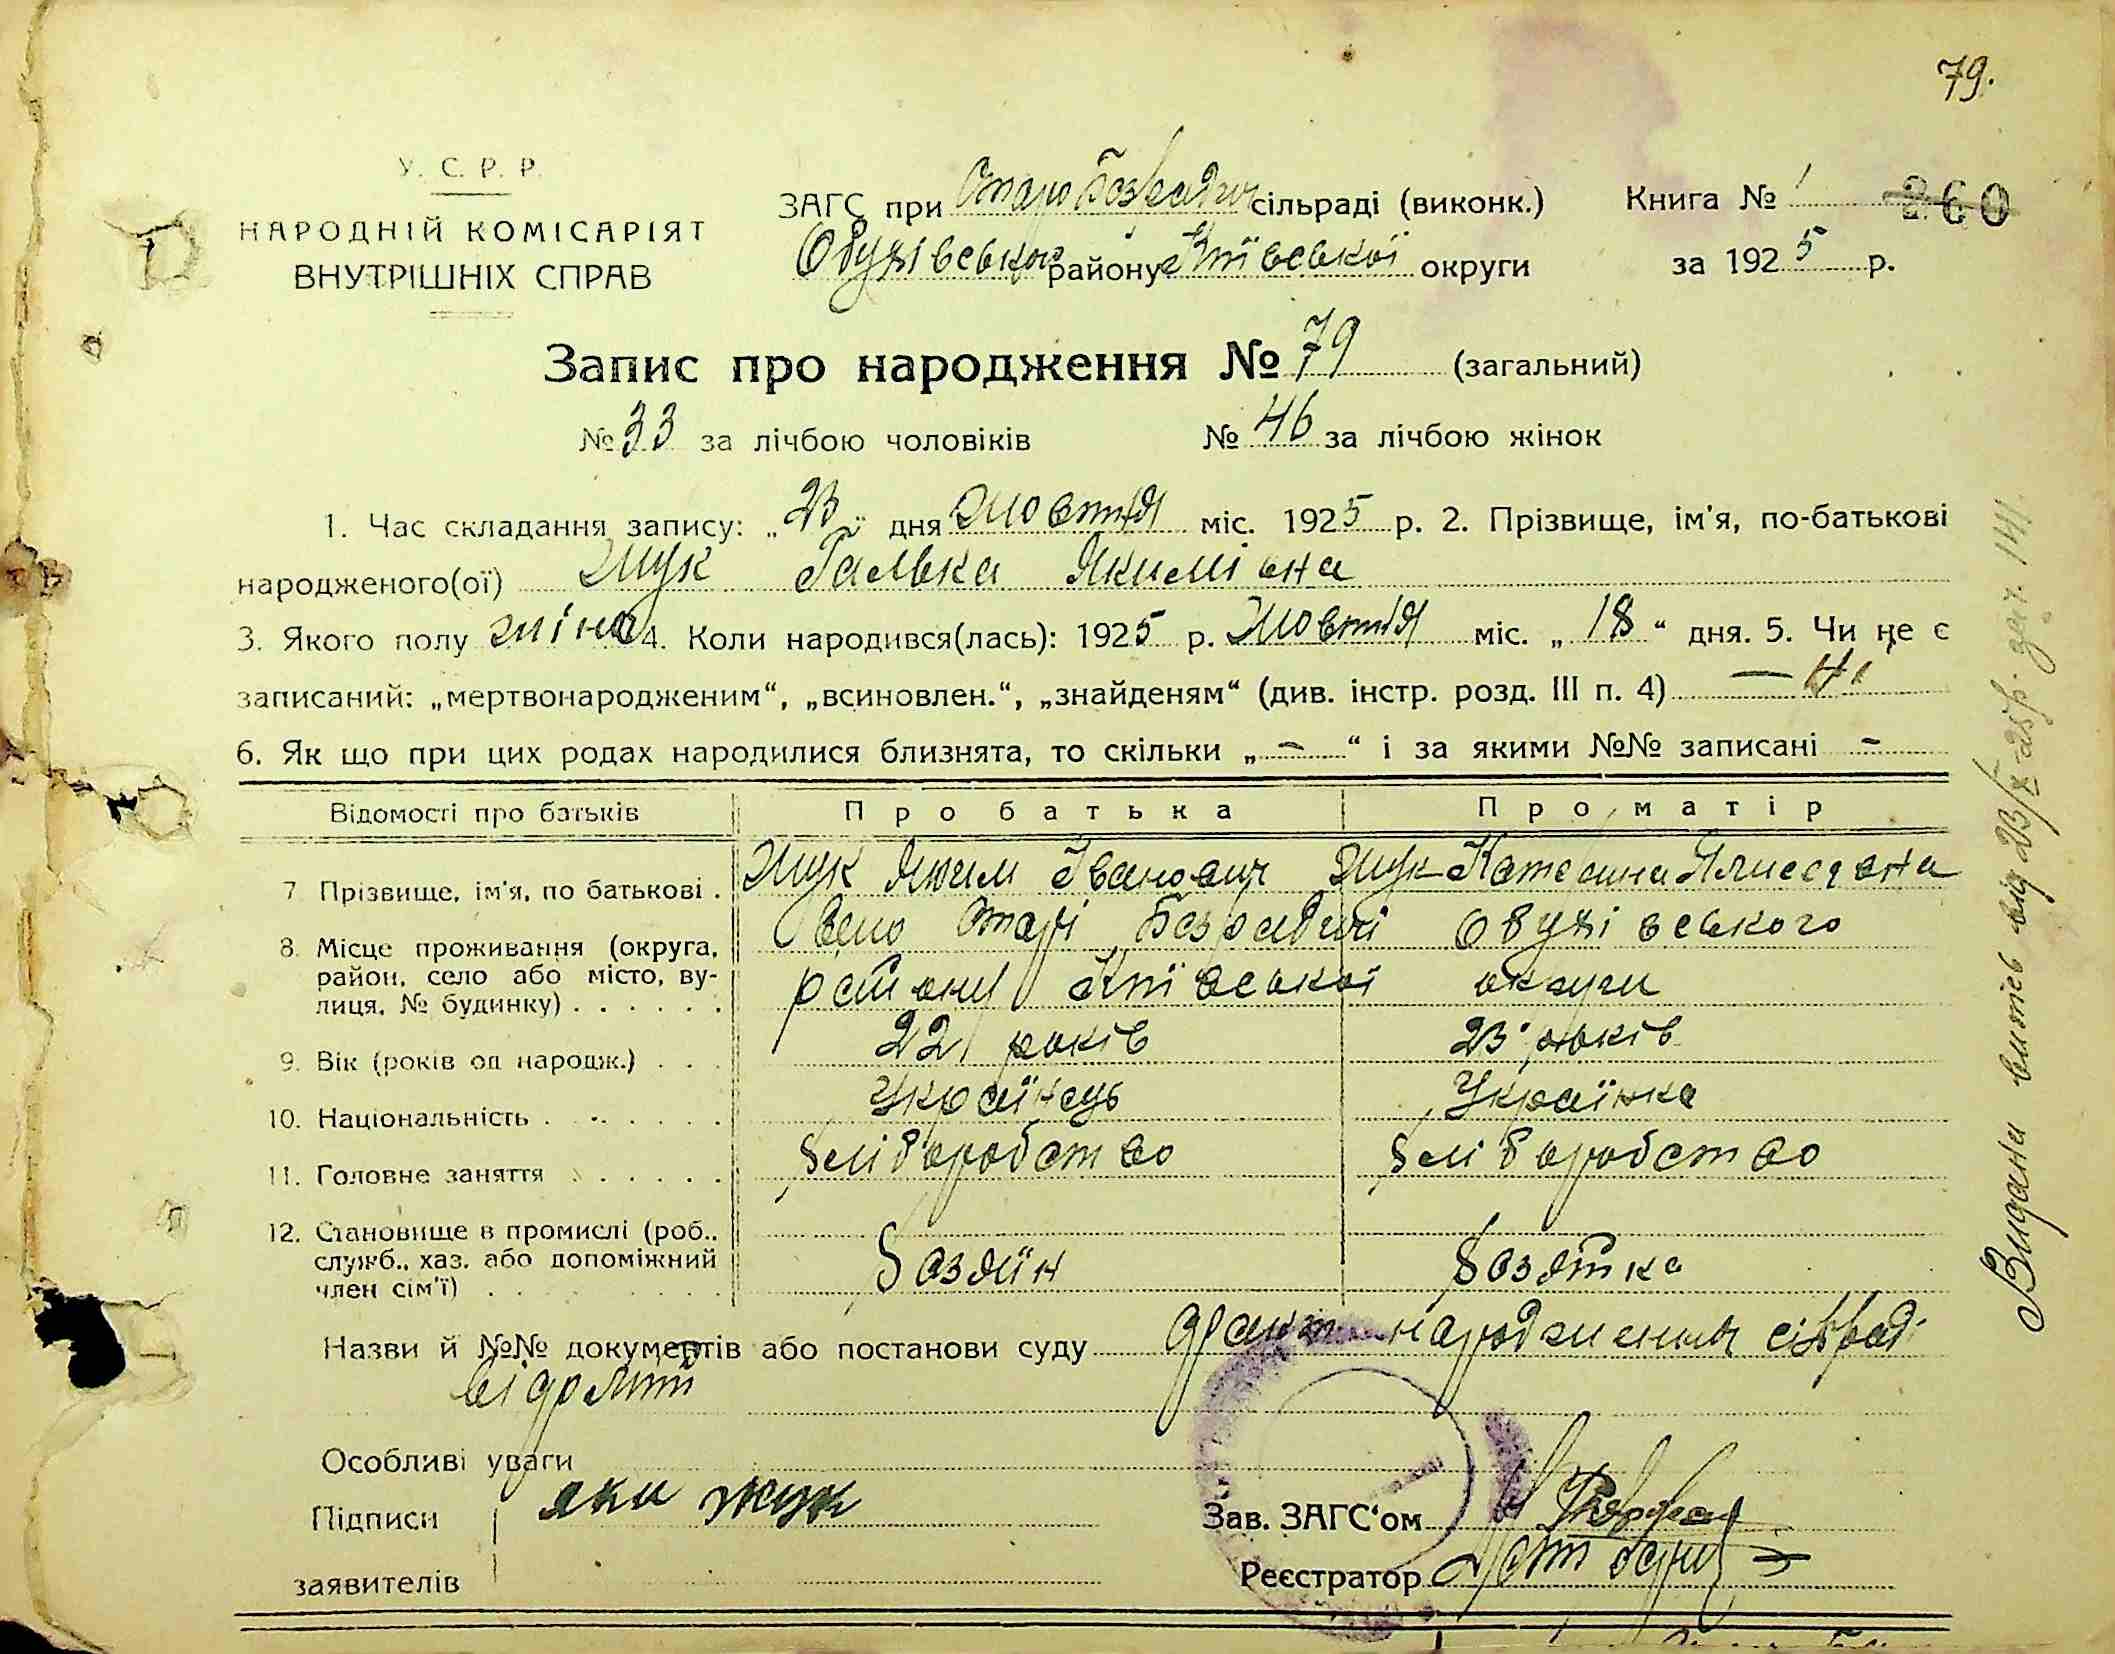 79.
У. С. Р. Р.
НАРОДНІЙ КОМІСАРІЯТ
ВНУТРІШНІХ СПРАВ
ЗАГС при Старо Безрадич сільраді (виконк.)
Обухівського району Київської округи
Книга № 1
260
за 1925 р.
Запис про народження № 79 (загальний)
№ 33 за лічбою чоловіків № 46 за лічбою жінок
1. Час складання запису: „23" дня Жовтня міс. 1925 р. 2. Прізвище, ім'я, по-батькові
народженого(ої) Жук Галька Якимівна
3. Якого полу жіноч 4. Коли народився(лась): 1925 р. Жовтня міс. „18" дня. 5. Чи не є
записаний: „мертвонародженим", „всиновлен.", „знайденям" (див. інстр. розд. III п. 4) — Ні
6. Як що при цих родах народилися близнята, то скільки „—" і за якими №№ записані —
Відомості про батьків Про батька Про матір
7 Прізвище, ім'я, по батькові . Жук Яким Іванович Жук Катерина
8. Місце проживання (округа, район, село або місто, вулиця, № будинку) . . . . . . Село Старі Безрадичі Обухівського
району Київської округи
9. Вік (років од народж.) . . . 22 років 23 років
10. Національність . . . . . . Українець Українка
11. Головне заняття . . . . . Хліборобство Хліборобство
12. Становище в промислі (роб., служб., хаз. або допоміжний член сім'ї) . . . . . . Хазяїн Хазяйка
Назви й №№ документів або постанови суду факт народження сільраді
відомий
Особливі уваги
Підписи яки жук
заявителів
Зав. ЗАГС'ом
Реєстратор
Видани витяг від 23/X